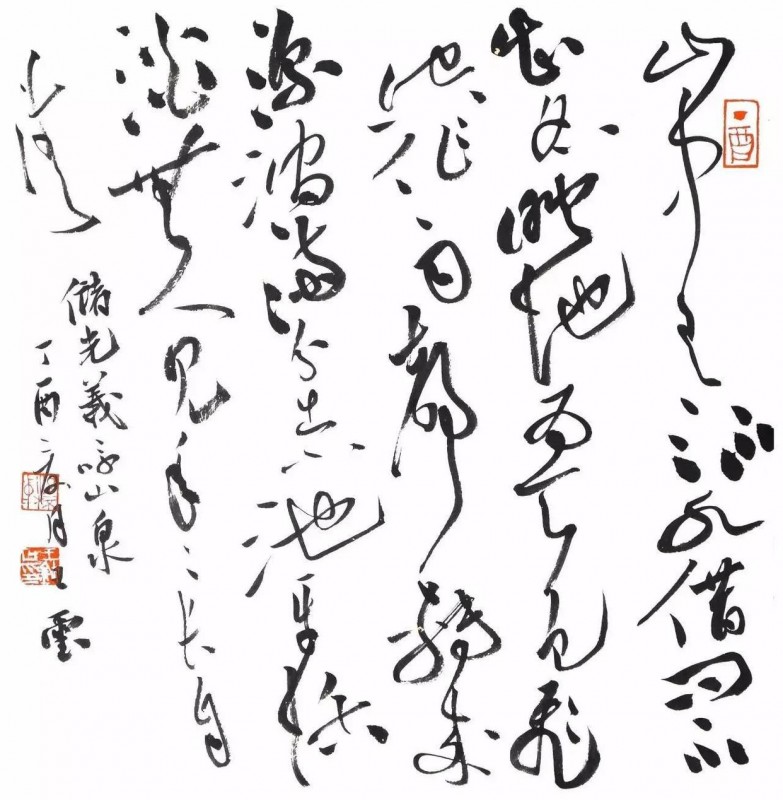 山中有流水借問不
知名映地為天色飛
空作雨聲轉來
深澗滿分出小池平恬
澹無人見年二長自
清
儲光義詠山泉
丁酉月雲
酉